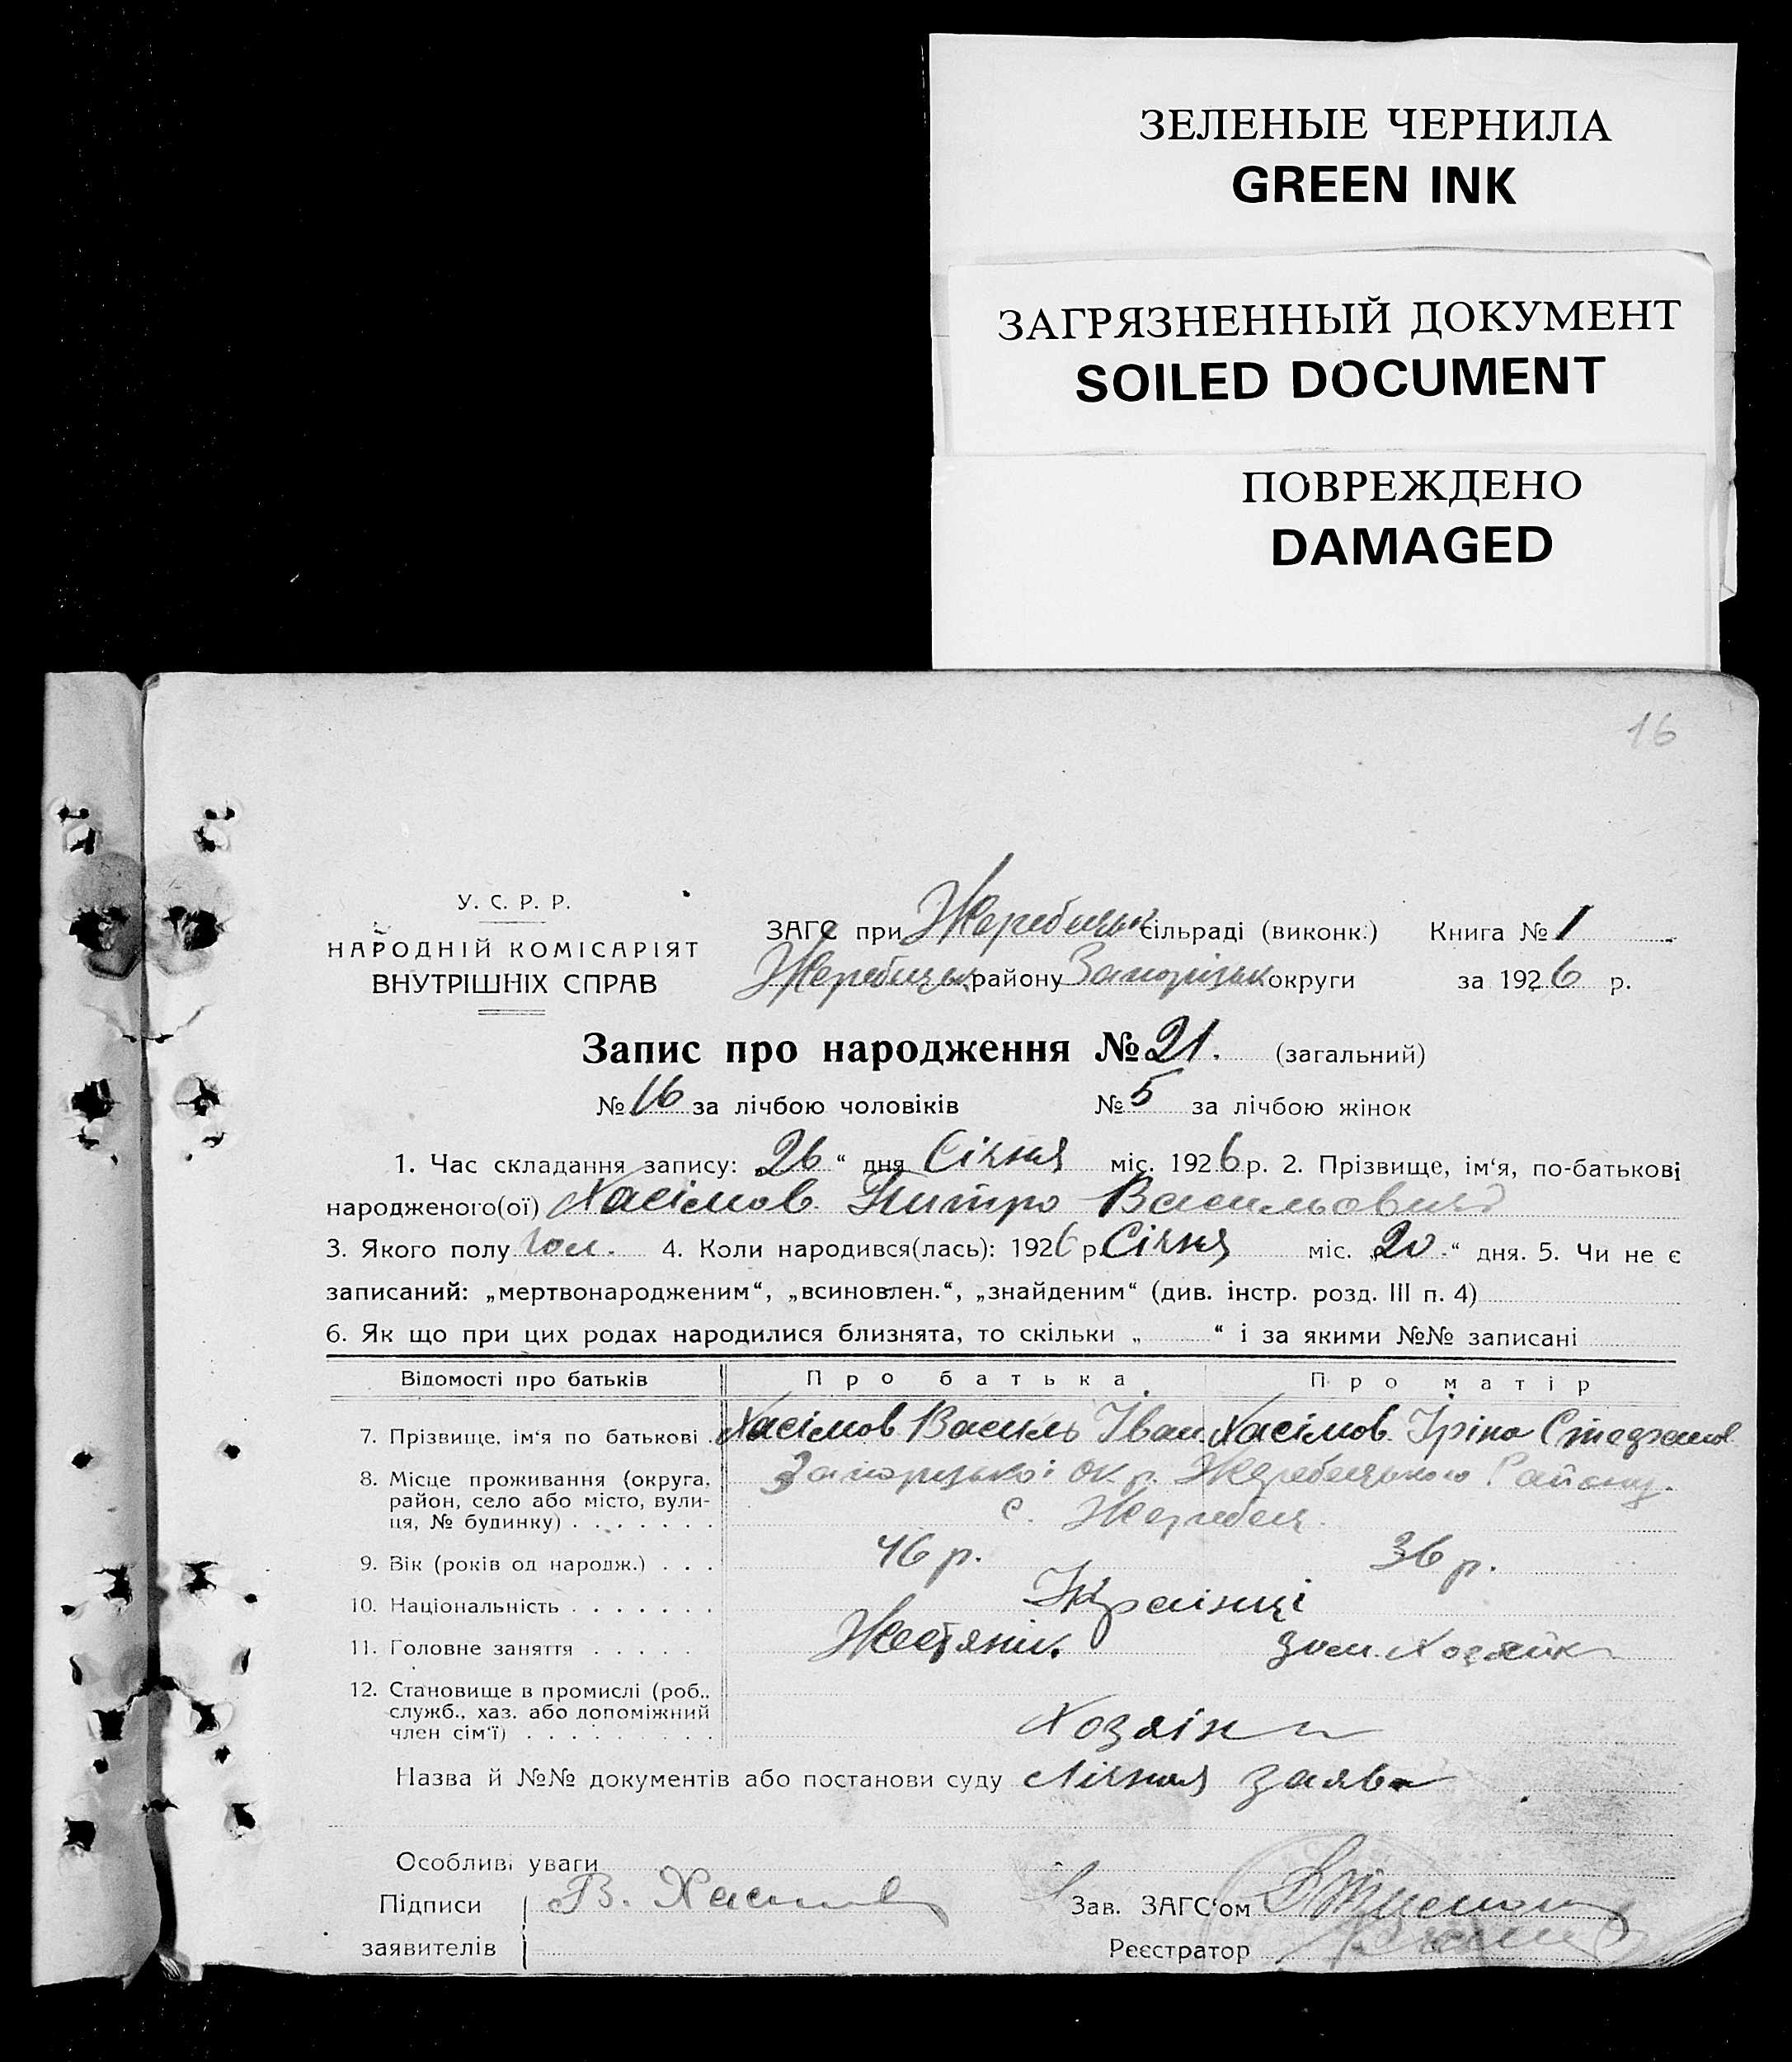 ЗЕЛЕНЫЕ ЧЕРНИЛА
GREEN INK
ЗАГРЯЗНЕННЫЙ ДОКУМЕНТ
SOILED DOCUMENT
ПОВРЕЖДЕНО
DAMAGED
16
У. С. Р. Р.
НАРОДНІЙ КОМІСАРІЯТ
ВНУТРІШНІХ СПРАВ
ЗАГС при Жеребецьк сільраді (виконк.) Книга № 1
Жеребецьк району Запорізьк округи за 1926 р.
Запис про народження № 21. (загальний)
№ 16 за лічбою чоловіків № 5 за лічбою жінок
1. Час складання запису: „26“ дня Січня міс. 1926 р. 2. Прізвище, ім‘я, по-батькові
народженого(ої) Хасімов Питро Васильович
3. Якого полу чол. 4. Коли народився(лась): 1926 р. Січня міс. „20“ дня. 5. Чи не є
записаний: „мертвонародженим“, „всиновлен.“, „знайденим“ (див. інстр. розд. III п. 4)
6. Як що при цих родах народилися близнята, то скільки „ “ і за якими №№ записані
Відомості про батьків Про батька Про матір
7. Прізвище, ім‘я по батькові Хасімов Василь Іван. Хасімов Іріна Стефанов
8. Місце проживання (округа, район, село або місто, вулиця, № будинку) Запорізької окр. Жеребецького Району.
с. Жеребец.
9. Вік (років од народж.) 46 р. 36 р.
10. Національність Українці
11. Головне заняття Жестянік. дом. хозяйк
12. Становище в промислі (роб., служб., хаз. або допоміжний член сім‘ї) Хозяін
Назва й №№ документів або постанови суду лічная заява
Особливі уваги
Підписи В. Хасимов Зав. ЗАГС‘ом
заявителів Реєстратор